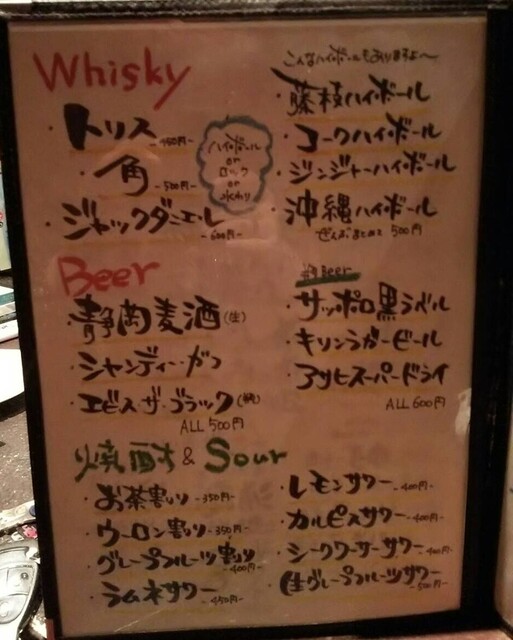 Whisky
・トリス -450円-
・角 -500円-
・ジャックダニエル -600円-
ハイボール
or
ロック
or
水わり
こんなハイボールもありますよ〜
・藤枝ハイボール
・コークハイボール
・ジンジャーハイボール
・沖縄ハイボール
ぜんぶまとめて 500円
Beer
・静岡麦酒(生)
・シャンディ・ガフ
・エビス・ザ・ブラック
ALL 500円
Beer
・サッポロ黒ラベル
・キリンラガービール
・アサヒスーパードライ
ALL 600円
焼酎 & Sour
・お茶割り -350円-
・ウーロン割り -350円-
・グレープフルーツ割り -400円-
・ラムネサワー -450円-
・レモンサワー -400円-
・カルピスサワー -400円-
・シークワーサーサワー -400円-
・生グレープフルーツサワー -500円-